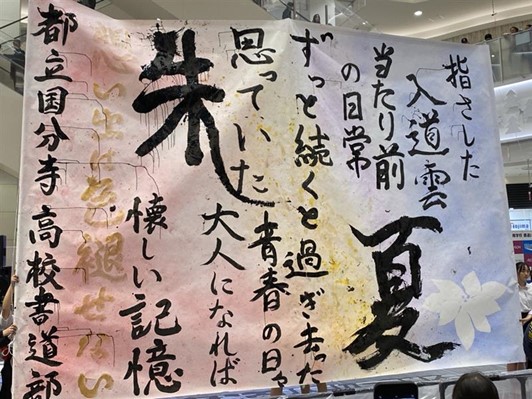 指さした
入道雲
夏
当たり前
の日常
ずっと続くと
思っていた
過ぎ去った
青春の日々
大人になれば
朱
懐しい記憶
い出は色褪せない
都立国分寺高校書道部